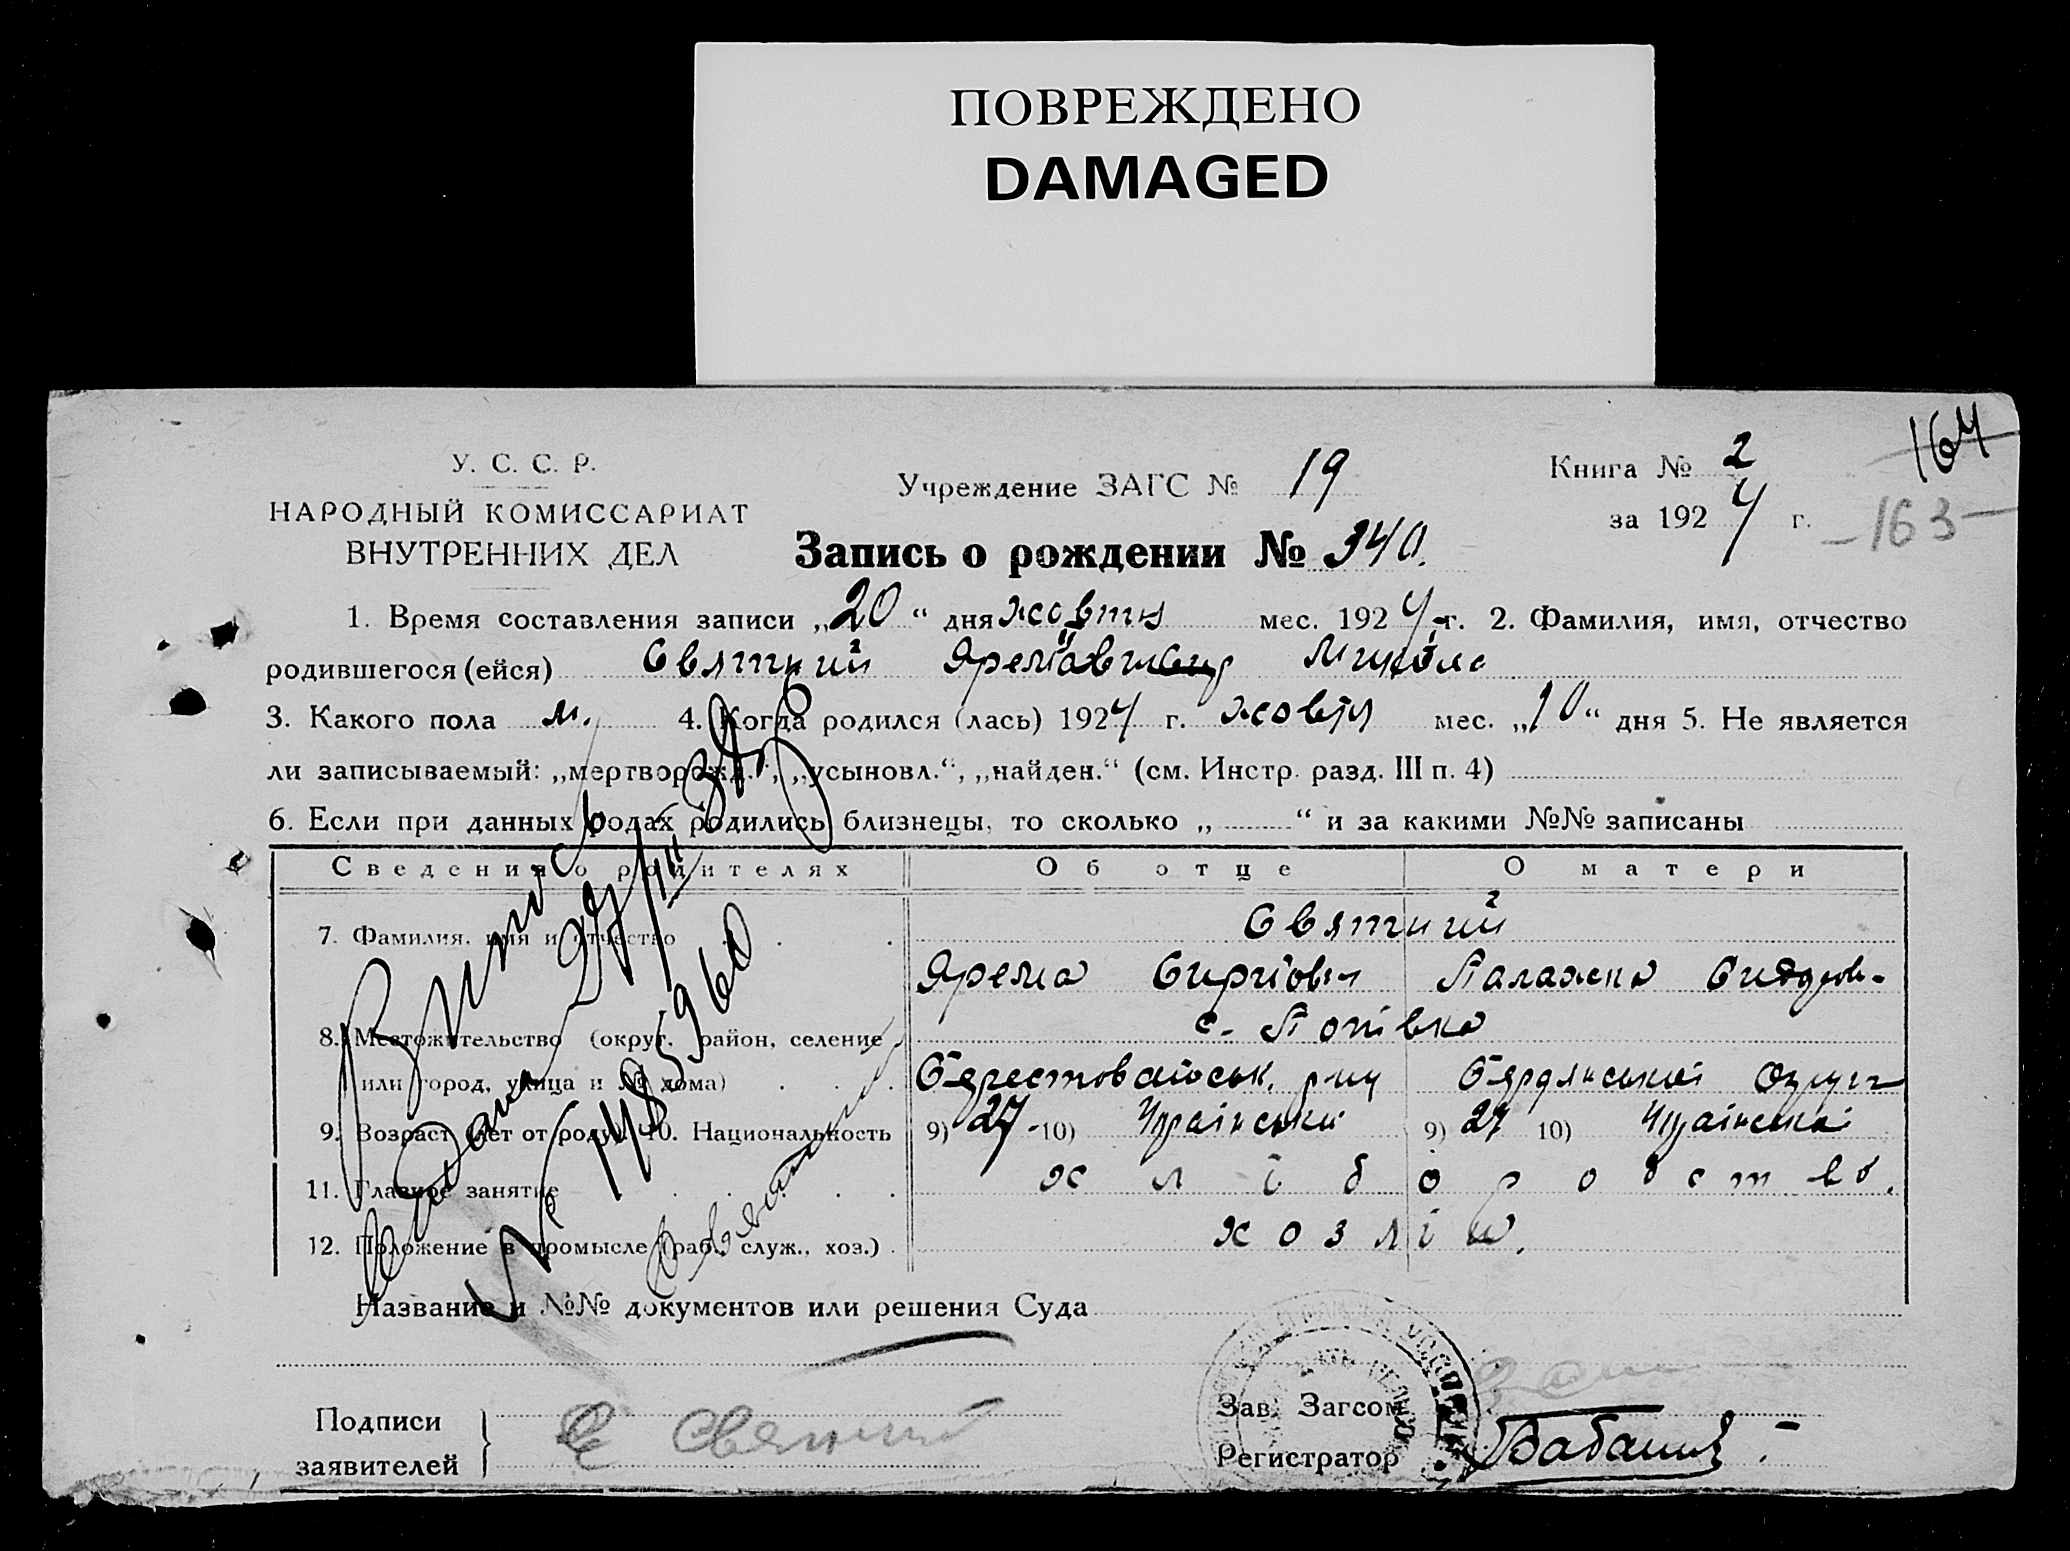 ПОВРЕЖДЕНО
DAMAGED
164
У. С. С. Р.
НАРОДНЫЙ КОМИССАРИАТ
ВНУТРЕННИХ ДЕЛ
Учреждение ЗАГС № 19
Книга № 2
за 1924 г.
163
Запись о рождении № 340.
1. Время составления записи „20“ дня жовтня мес. 1924 г. 2. Фамилия, имя, отчество
родившегося (ейся) Святний Микола
3. Какого пола м. 4. Когда родился (лась) 1924 г. жовтя мес. „10“ дня 5. Не является
ли записываемый: „мертворожд.“, „усыновл.“, „найден.“ (см. Инстр. разд. III п. 4)
6. Если при данных родах родились близнецы, то сколько „ “ и за какими №№ записаны
Сведения о родителях Об отце О матери
7. Фамилия, имя и отчество Святний
Ярема Сиргіович Палажка
8. Местожительство (округ, район, селение с. Попівка
или город, улица и № дома) Берестоватськ. р-ну Бердянської Округи
9. Возраст (лет от роду) 10. Национальность 9) 27 10) Українська 9) 27 10) Українська
11. Главное занятие хліборобство.
12. Положение в промысле (раб., служ., хоз.) хозяїн.
Название и №№ документов или решения Суда
Витяг
видан
Подписи
заявителей
Святний
Зав. Загсом
Регистратор